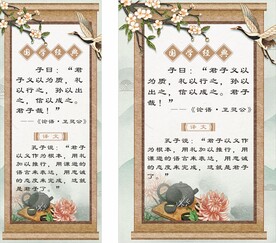 国学经典
子曰："君子义
以为质，礼
以行之，孙以
出之，信以成之。
君子哉！"
——《论语·卫灵公》
译文
孔子说："君子以
义作为根本，用礼
加以推行，用谦逊
的语言来表达，用忠诚
的态度来完成，这就
是君子了。"
国学经典
子曰："君子义以
为质，礼以行之，
孙以出之，信以
成之。君子哉！"
——《论语·卫灵公》
译文
孔子说："君子以义作
为根本，用礼加以推行，用
谦逊的语言来表达，用忠诚
的态度来完成，这就是君子
了。"